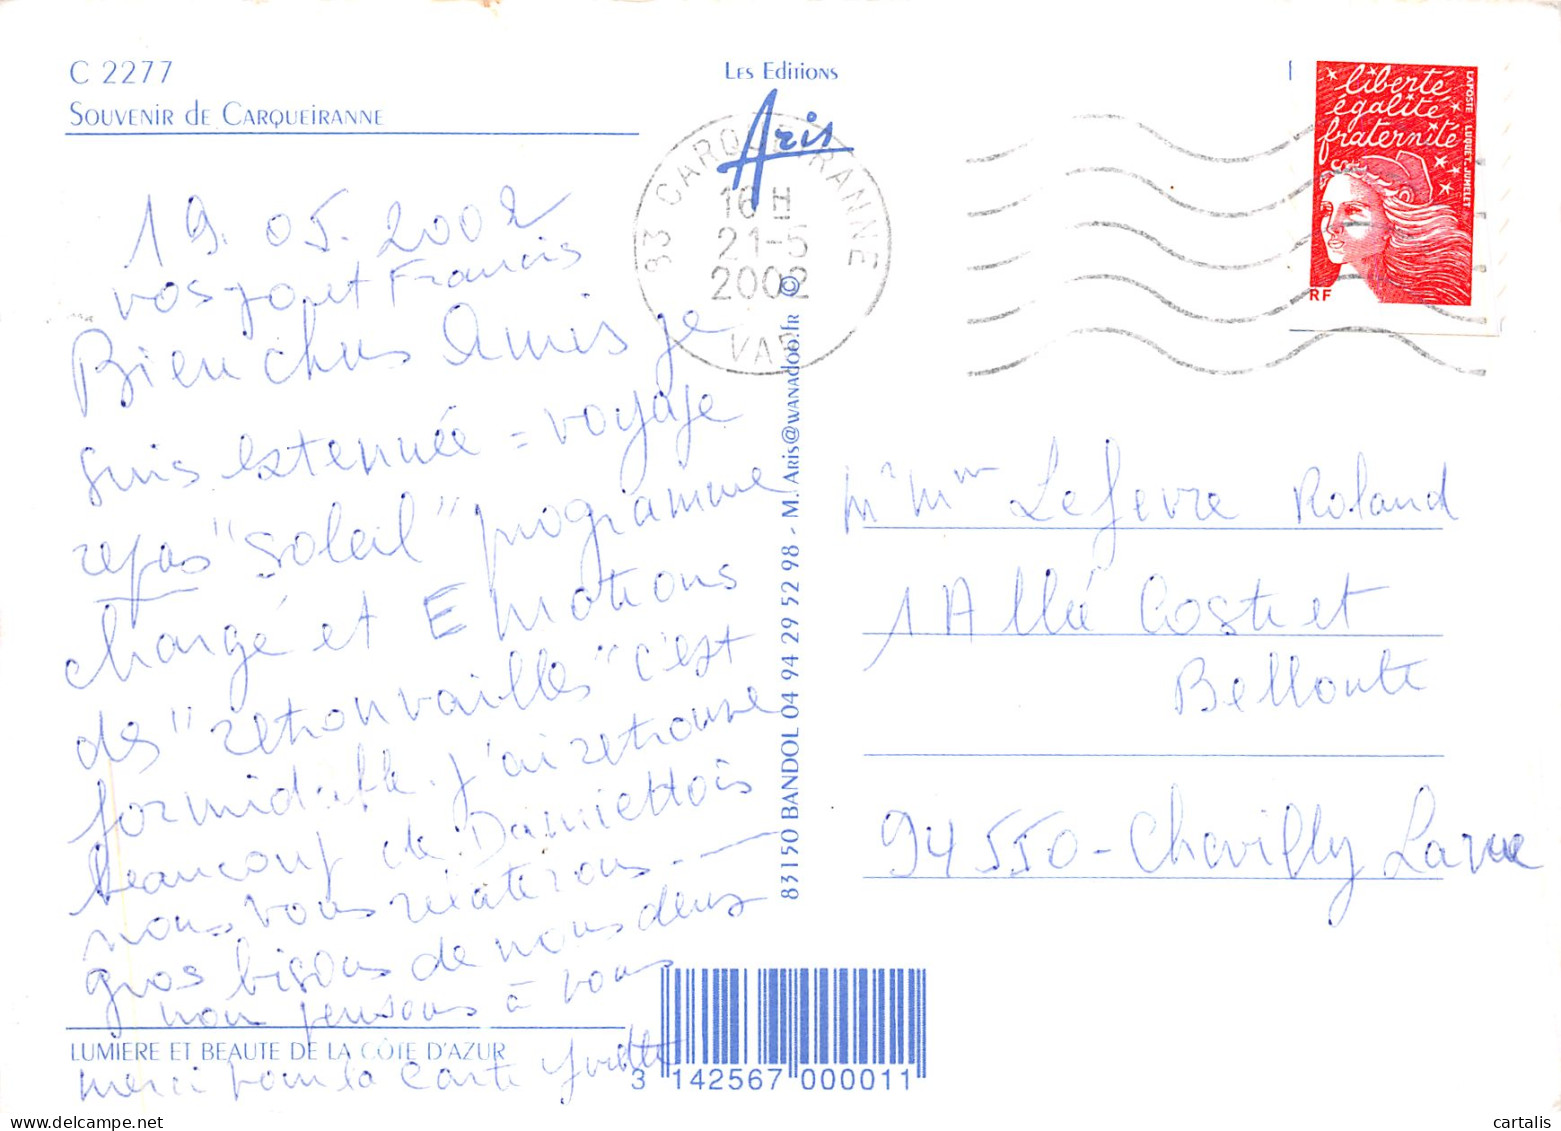 C 2277
Souvenir de Carqueiranne
Les Editions
Aris
83 CARQUEIRANNE
16 H
21-5
2002
VAR
liberté
égalité
fraternité
LA POSTE LUQUET-JUMELET
RF
19.05.2002
vos et Francis
Bien chers Amis je
suis extennuée = voyage
repas "soleil" programme
chargé et Emotions
des "retrouvailles" c'est
formidable. J'ai retrouvé
beaucoup de Damiettois
nous vous relaterons ---
gros bisous de nous deux
nous pensons à vous
merci pour la carte Yvette
83150 BANDOL 04 94 29 52 98 - M. Aris@wanadoo.fr ©
M. Mme Lefevre Roland
1 Allée Coste et
Bellonte
94550 - Chevilly Larue
LUMIERE ET BEAUTE DE LA CÔTE D'AZUR
3 142567 000011
cartalis